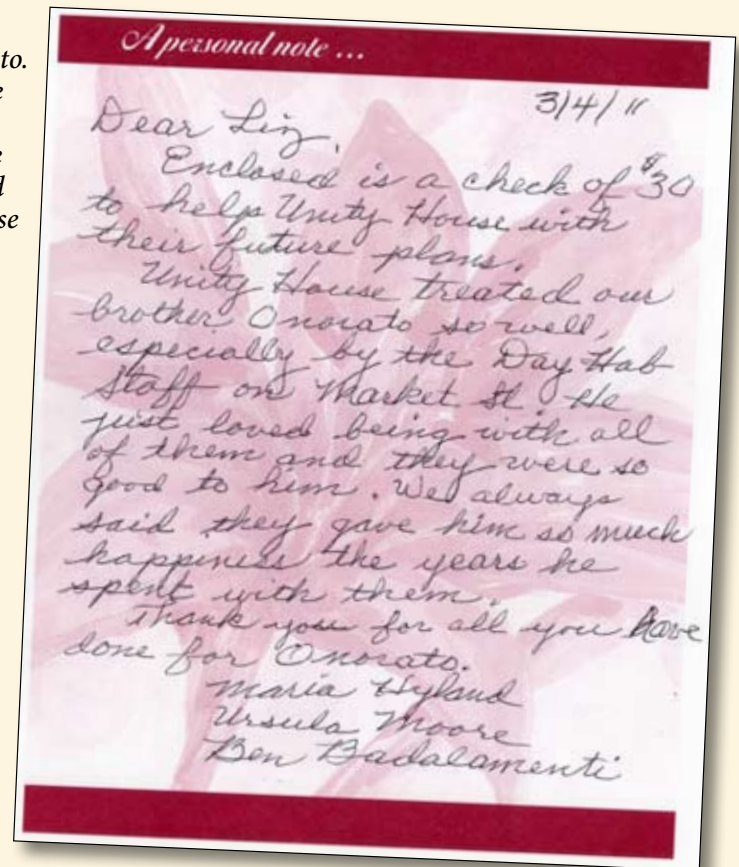 to.
e
e
d
se
A personal note ...
3/4/11
Dear Liz,
Enclosed is a check of $30
to help Unity House with
their future plans.
Unity House treated our
brother Onorato so well,
especially by the Day Hab
Staff on Market St. He
just loved being with all
of them and they were so
good to him. We always
said they gave him so much
happiness the years he
spent with them.
Thank you for all you have
done for Onorato.
Maria Hyland
Ursula Moore
Ben Badalamenti